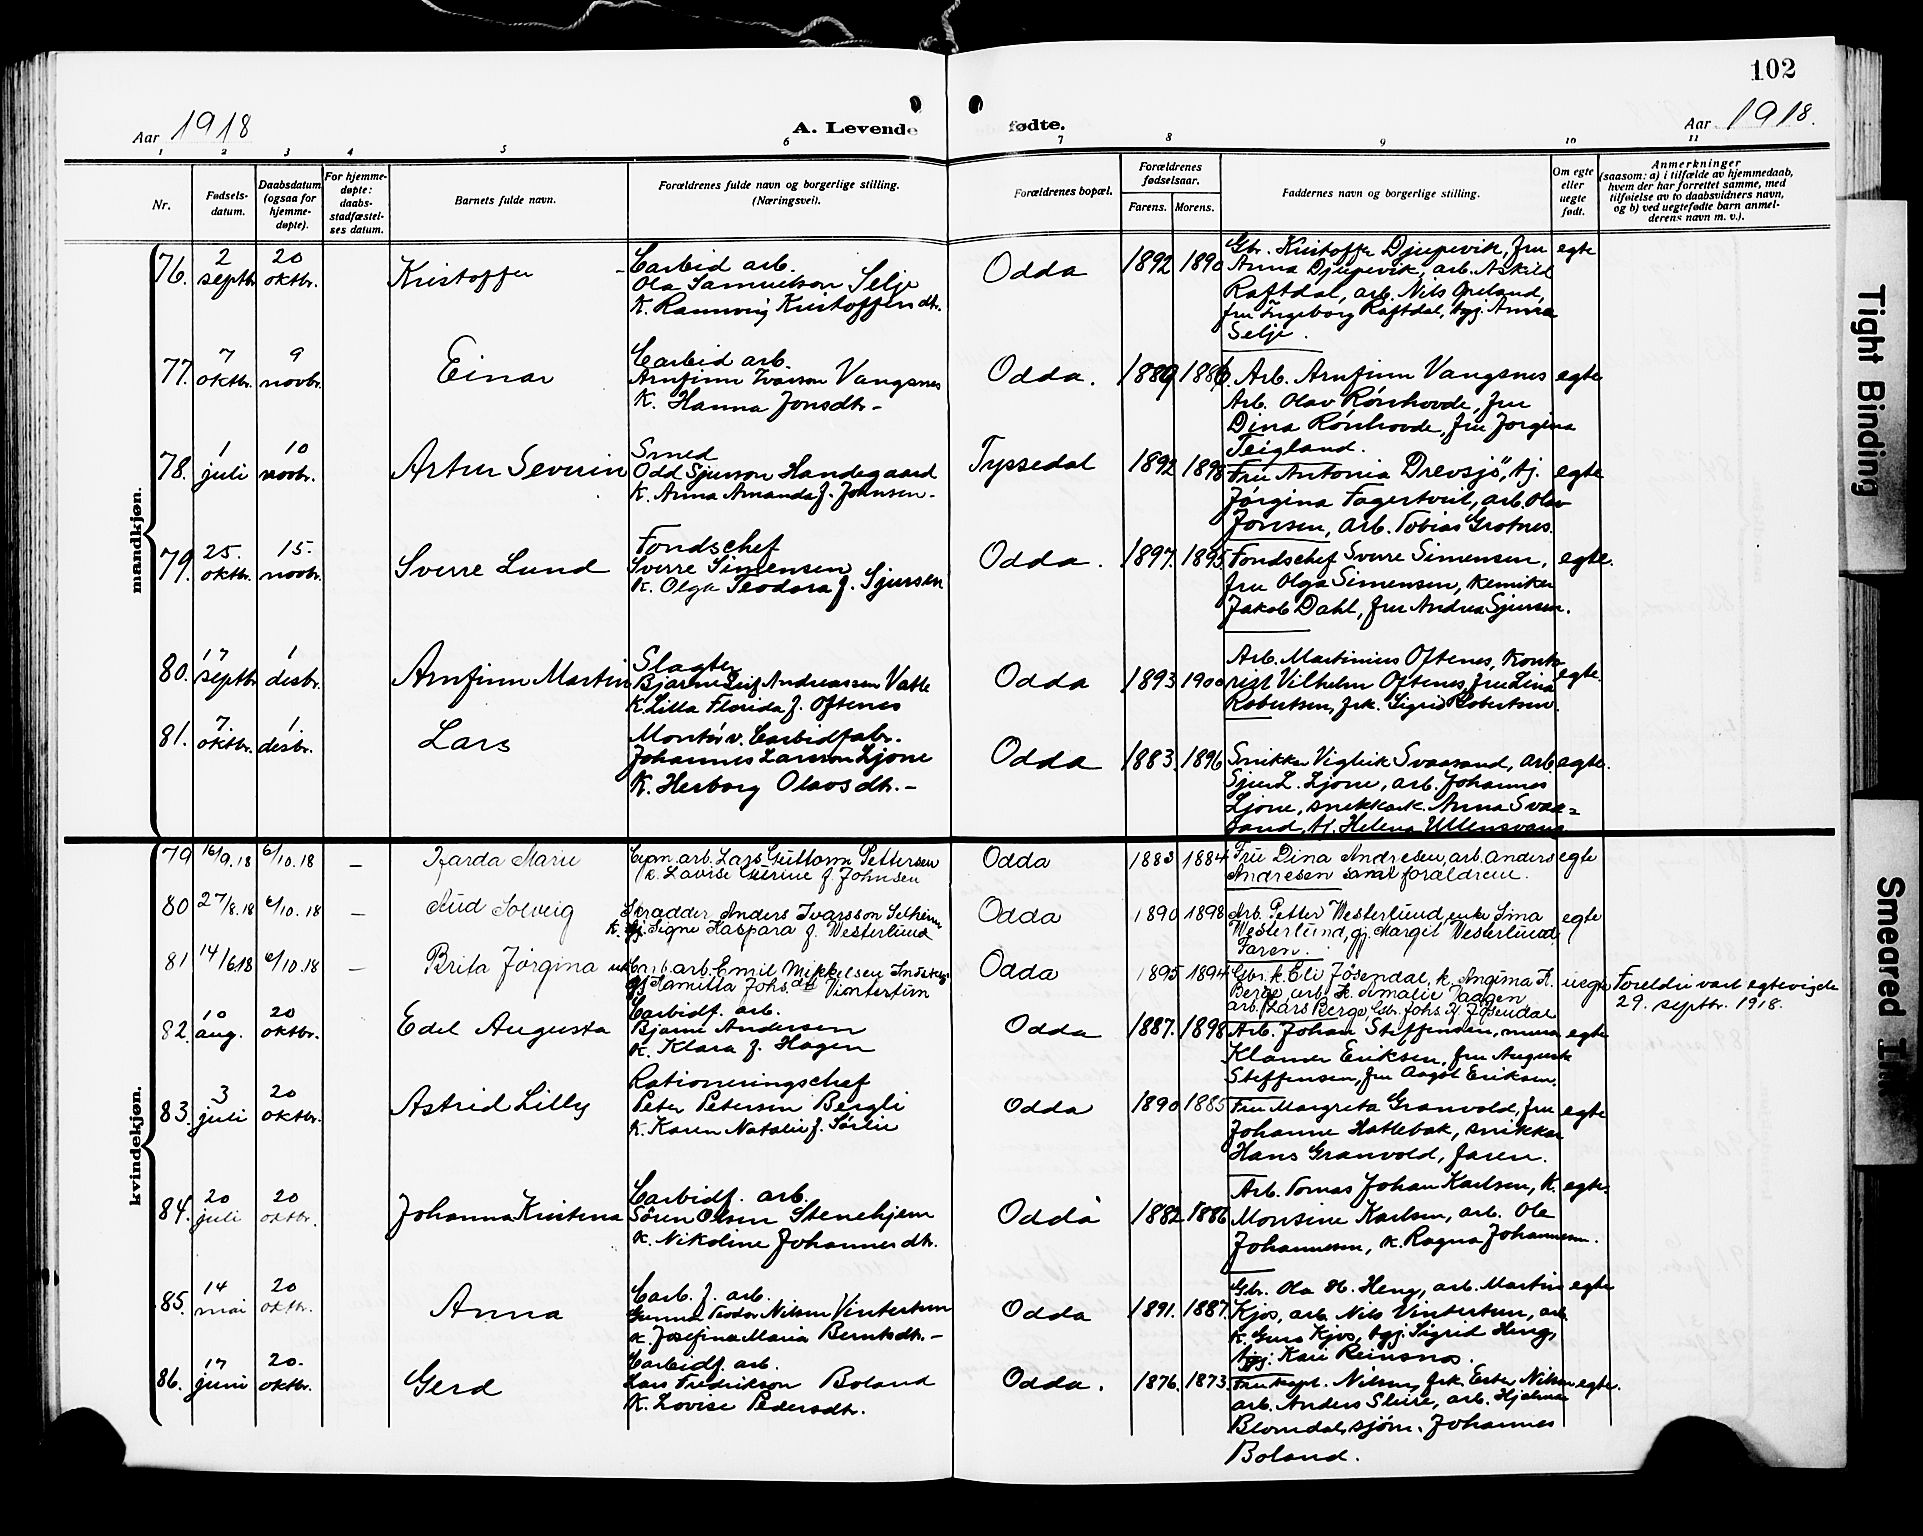 102
Aar 1918
A. Levende fødte.
Aar 1918.
1 2 3 4 5 6 7 8 9 10 11
Nr.
Fødsels-
datum.
Daabsdatum
(ogsaa for
hjemme-
døpte).
For hjemme-
døpte:
daabs-
stadfæstel-
ses datum.
Barnets fulde navn.
Forældrenes fulde navn og borgerlige stilling.
(Næringsvei).
Forældrenes bopæl.
Forældrenes
fødselsaar.
Farens. Morens.
Faddernes navn og borgerlige stilling.
Om egte
eller
uegte
født.
Anmerkninger
(saasom: a) i tilfælde av hjemmedaab,
hvem der har forrettet samme, med
tilføielse av to daabsvidners navn,
og b) ved uegtefødte barn anmel-
derens navn m. v.).
mandkjøn.
76. 2 septbr. 20 oktbr. Kristoffer
Carbid arb.
Ola Samuelson Selje
K. Rannveig Kristoffersdtr.
Odda 1892 1890
Gbr. Kristoffer Djupevik, fru
Anna Djupevik, arb. Askild
Raftdal, arb. Nils Opeland,
fru Ingeborg Raftdal, tyj. Anna
Selje.
egte
77. 7 oktbr. 9 novbr. Einar
Carbid arb.
Arnfinn Ivarson Vangsnes
K. Hanna Jonsdtr. -
Odda. 1889 1886
Arb. Arnfinn Vangsnes
Arb. Olav Rönhovde, fru
Dina Rönhovde, fru Jorgina
Teigland.
egte
78. 1 juli 10 novbr. Artur Severin
Smed
Odd Sjurson Handegaard
K. Anna Amanda f. Johnsen -
Tyssedal 1892 1898
Fru Antonia Drevsjö, tj.
Jörgina Fagertveit, arb. Olav
Jonsen, arb. Tobias Grotnes.
egte
79. 25. oktbr. 15. novbr. Sverre Lund
Fondschef
Sverre Simensen
K. Olga Teodora f. Sjursen
Odda. 1897. 1895
Fondschef Sverre Simensen,
fru Olga Simensen, kemiker
Jakob Dahl, fru Andrea Sjursen.
egte.
80. 17 septbr. 1 desbr. Arnfinn Martin
Slagter
Bjarne Leif Andreassen Vatle
K. Lilla Florida f. Oftenes
Odda 1893 1900
Arb. Martinius Oftenes, Konto-
rist Vilhelm Oftenes, fru Lina
Robertsen, frk. Sigrid Robertsen.
egte.
81. 7. oktbr. 1. desbr. Lars
Montör v. Carbidfabr.
Johannes Larsson Ljone
K. Herborg Olavsdtr. -
Odda 1883. 1896
Snikker Viglik Svaasand, arb.
Sjur L. Ljone, arb. Johannes
Ljone, snekkark. Anna Svaa=
sand, tj. Helena Ullensvang
egte.
kvindekjøn.
79 16/9.18 6/10.18 - Marie
Lars Guttorm Pettersen
K. Lovise f. Johnsen
Odda 1883 1884
Fru Dina Andresen, arb. Anders
Andresen samt forældrene.
egte
80 27/8.18 6/10.18 - Aud Solveig
Skrædder Anders Ivarsson Selheim
K. Signe Kaspara f. Westerlund
Odda 1890 1898
Arb. Petter Westerlund, enke Sina
Westerlund, pj. Margit Westerlund,
Faren.
egte
81 14/6.18 6/10.18 - Brita Jörgina
Carb. arb. Emil Mikkelsen
Johs.dtr Vintertun
Odda 1895 1894
Gbr. k. Eli Jösendal, k. Angina K.
Berge, arb. k. Amalie Jadgen
arb. Lars Berge, Gbr. Johs. K. Jösendal
uegte
Foreldri vart egtevigde
29. septbr. 1918.
82. 10 aug. 20 oktbr. Edel Augusta
Carbidf. arb.
Bjarne Andersen
K. Klara f. Hagen
Odda 1887. 1898
Arb. Johan Steffensen, murer
Klamer Eriksen, fru Augusta
Steffensen, fru Aagot Eriksen.
egte
83. 3 juli 20 oktbr. Astrid Lilly
Rationeringschef
Peter Petersen Bergli
K. Karen Natalie f. Sörlie
Odda 1890 1885
Fru Margreta Granvold, fru
Johanne Hatlebak, snikkar
Hans Granvold, faren.
egte
84. 20 juli 20 oktbr. Johanna Kristena
Carbidf. arb.
Sören Olsen Stenehjem
K. Nikoline Johannesdtr.
Odda 1882 1886
Arb. Tomas Johan Karlsen, K.
Monsine Karlsen, arb. Ole
Johannesen, K. Ragna Johannesen.
egte.
85. 14 mai 20 oktbr. Anna
Carb. f. arb.
Gunnar Teodor Nilsen Vintertun
K. Josefina Maria Berntsdtr. -
Odda 1891. 1887.
Gbr. Ola H. Heng, arb. Martin
Kjos, arb. Nils Vintertun, arb.
K. Guro Kjos, tyj. Sigrid Heng,
tyj. Kari Reinsnos.
egte
86. 17 juni 20. oktbr. Gerd
Carbidf. arb.
Lars Fredrikson Boland
K. Lovise Pedersdtr.
Odda. 1876. 1873.
Fru kapt. Nilsen, frk. Ester Nilsen
arb. Anders Sleire, arb. Hjalmar
Blomdal, sjöm. Johannes
Boland.
egte.
Tight Binding
Smeared Ink